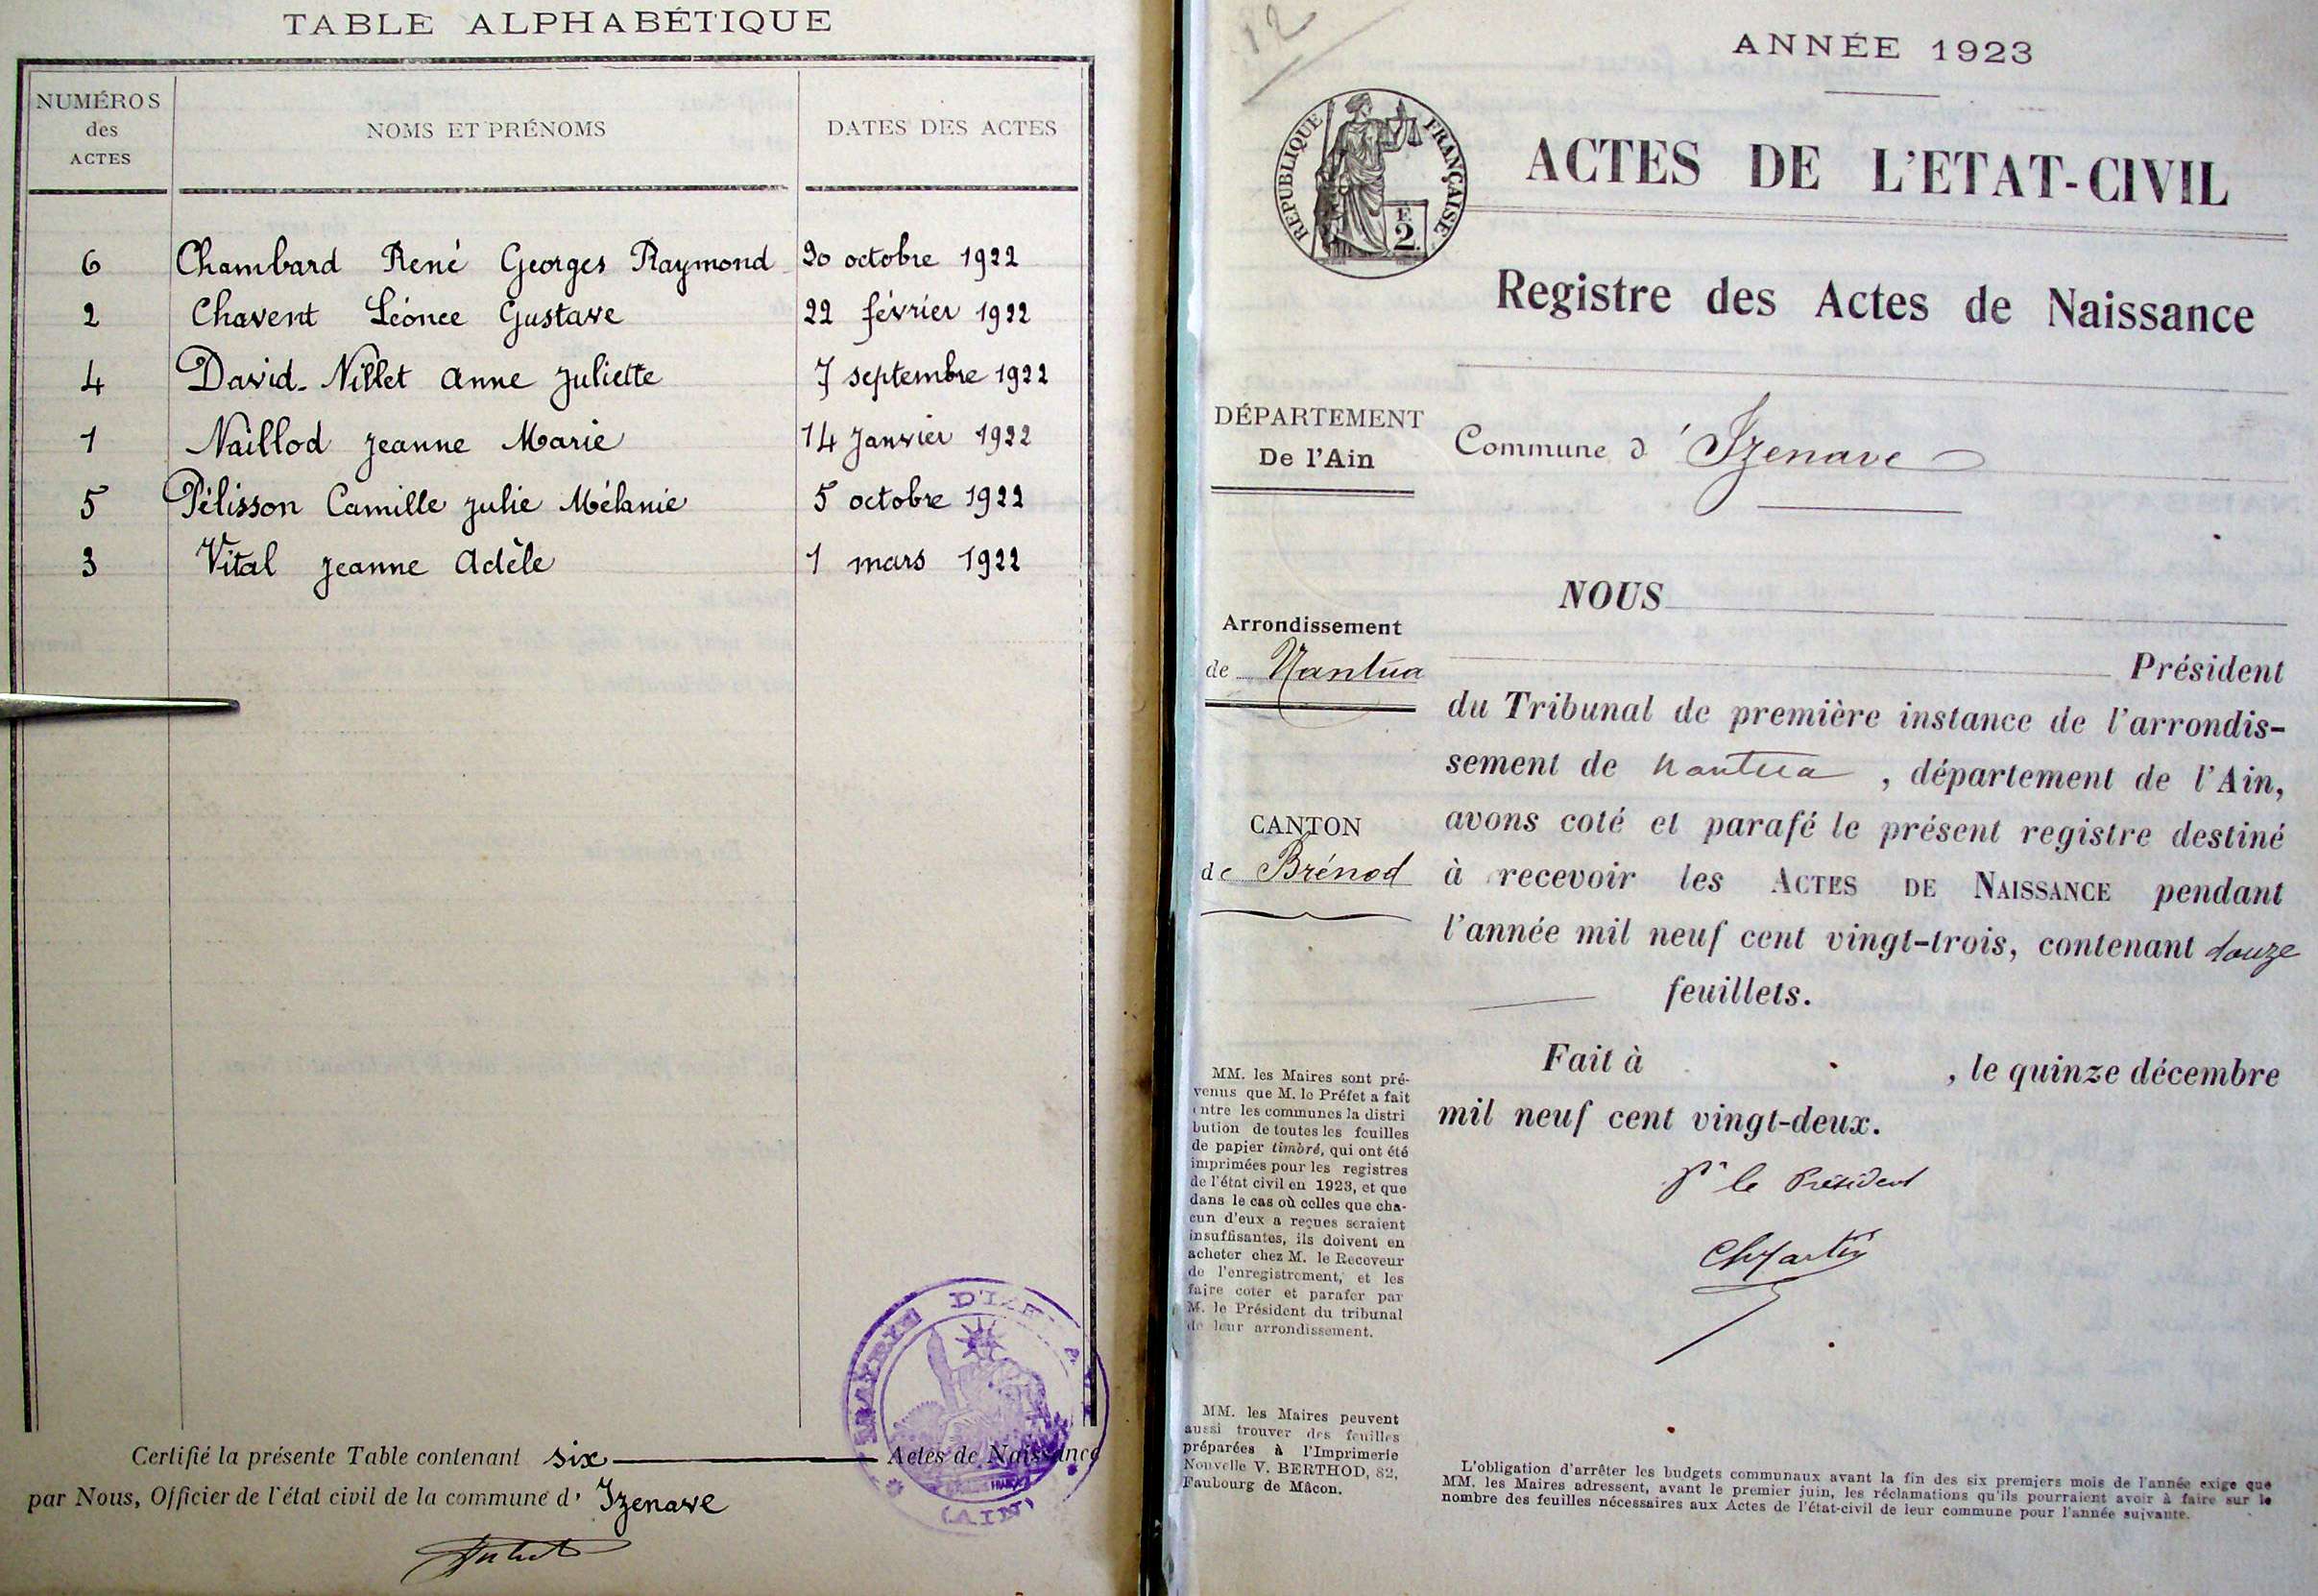 TABLE ALPHABÉTIQUE
NUMÉROS
des
ACTES
NOMS ET PRÉNOMS
DATES DES ACTES
6 Chambard René Georges Raymond 30 octobre 1922
2 Chavent Léonce Gustave 22 février 1922
4 David-Nillet Anne Juliette 7 septembre 1922
1 Naillod Jeanne Marie 14 Janvier 1922
5 Pélisson Camille Julie Mélanie 5 octobre 1922
3 Vital Jeanne Adèle 1 mars 1922
Certifié la présente Table contenant six Actes de Naissance
par Nous, Officier de l'état civil de la commune d' Izenave
MAYRIE D'IZE
(AIN)
12
ANNÉE 1923
RÉPUBLIQUE FRANÇAISE
F.
2
ACTES DE L'ETAT-CIVIL
Registre des Actes de Naissance
DÉPARTEMENT
De l'Ain
Commune d'Izenave
Arrondissement
de Nantua
CANTON
de Brénod
NOUS
Président
du Tribunal de première instance de l'arrondis-
sement de Nantua , département de l'Ain,
avons coté et parafé le présent registre destiné
à recevoir les ACTES DE NAISSANCE pendant
l'année mil neuf cent vingt-trois, contenant douze
feuillets.
Fait à , le quinze décembre
mil neuf cent vingt-deux.
Pr le Président
MM. les Maires sont pré-
venus que M. le Préfet a fait
entre les communes la distri
bution de toutes les feuilles
de papier timbré, qui ont été
imprimées pour les registres
de l'état civil en 1923, et que
dans le cas où celles que cha-
cun d'eux a reçues seraient
insuffisantes, ils doivent en
acheter chez M. le Receveur
de l'enregistrement, et les
faire coter et parafer par
M. le Président du tribunal
de leur arrondissement.
MM. les Maires peuvent
aussi trouver des feuilles
préparées à l'Imprimerie
Nouvelle V. BERTHOD, 82,
Faubourg de Mâcon.
L'obligation d'arrêter les budgets communaux avant la fin des six premiers mois de l'année exige que
MM. les Maires adressent, avant le premier juin, les réclamations qu'ils pourraient avoir à faire sur le
nombre des feuilles nécessaires aux Actes de l'état-civil de leur commune pour l'année suivante.